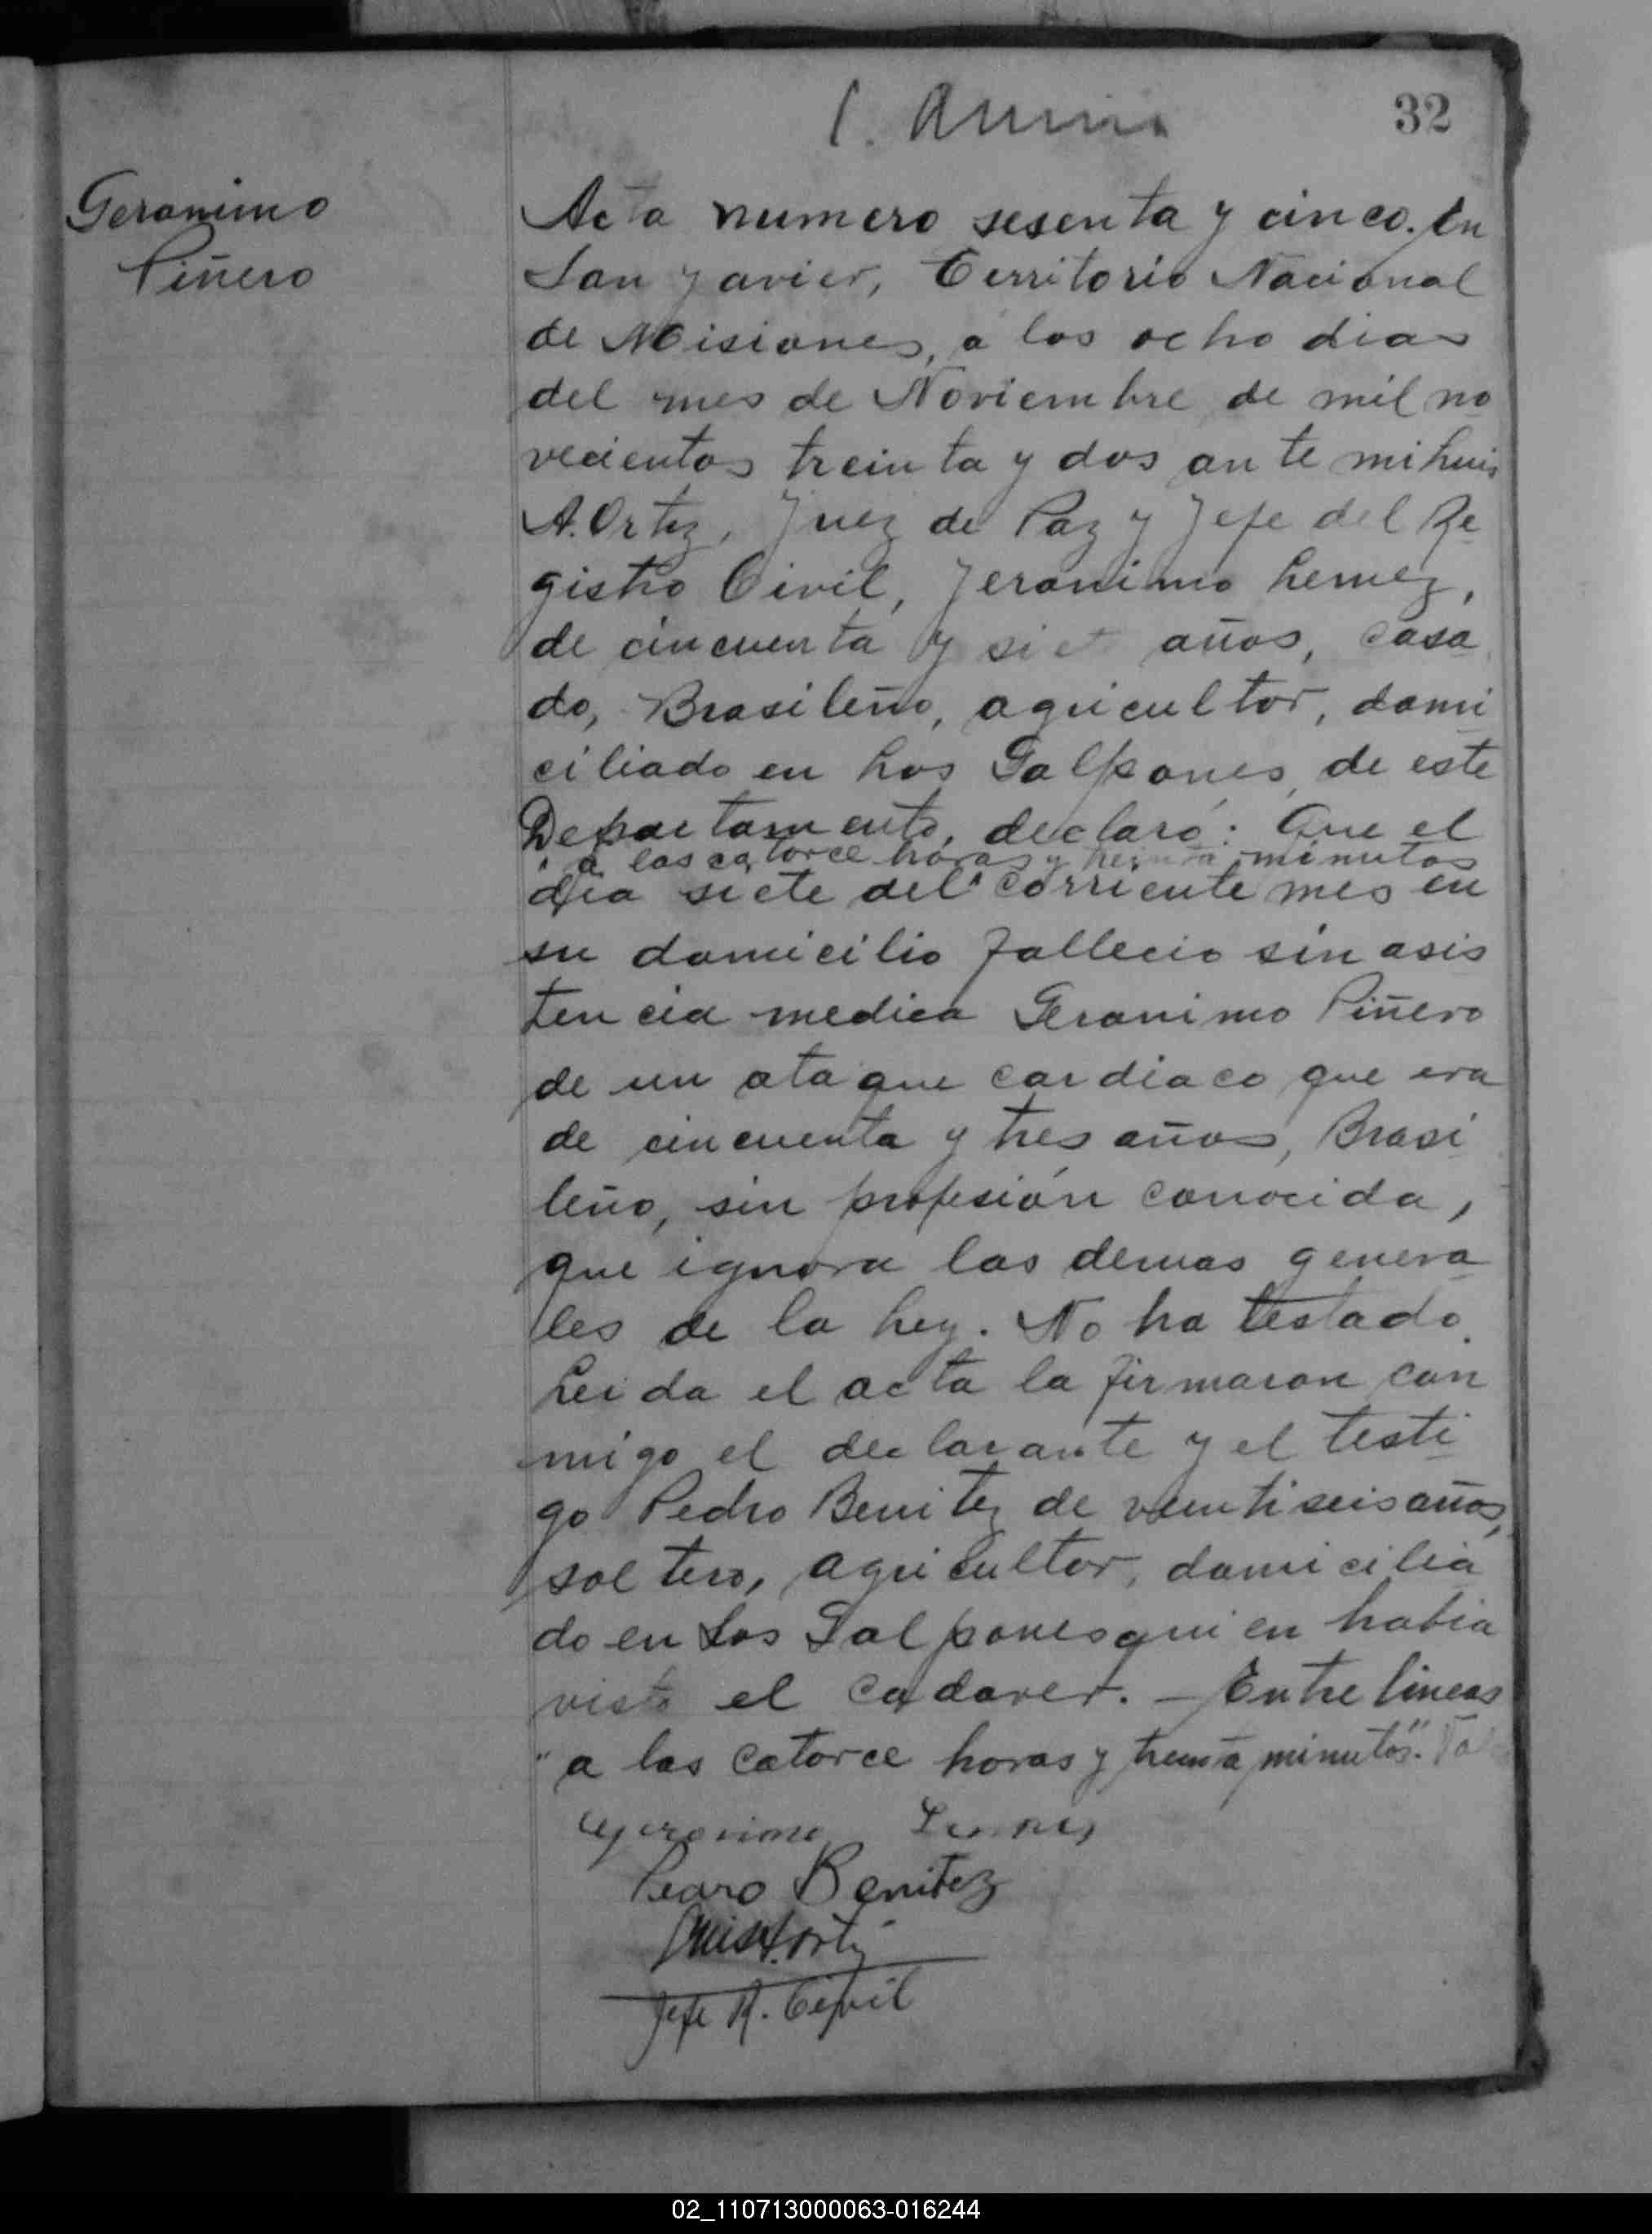 32
Geronimo
Piñero
Acta numero sesenta y cinco. En
San Javier, Territorio Nacional
de Misiones, a los ocho dias
del mes de Noviembre de mil no
vecientos treinta y dos ante mi Luis
A. Ortiz, Juez de Paz y Jefe del Re
gistro Civil, Jeronimo Lemez,
de cincuenta y siete años, casa
do, Brasileño, agricultor, domi
ciliado en Los Galpones, de este
Departamento, declaró: Que el
a las catorce horas y treinta minutos
dia siete del corriente mes en
su domicilio fallecio sin asis
tencia medica Geronimo Piñero
de un ataque cardiaco que era
de cincuenta y tres años, Brasi
leño, sin profesión conocida,
que ignora las demas genera
les de la Ley. No ha testado.
Leida el acta la firmaron con
migo el declarante y el testi
go Pedro Benitez de veintiseis años,
soltero, agricultor, domicilia
do en Los Galpones quien habia
visto el cadaver. - Entre lineas
"a las catorce horas y treinta minutos".
Geronimo
Pedro Benitez
Luis A. Ortiz
Jefe R. Civil
02_110713000063-016244